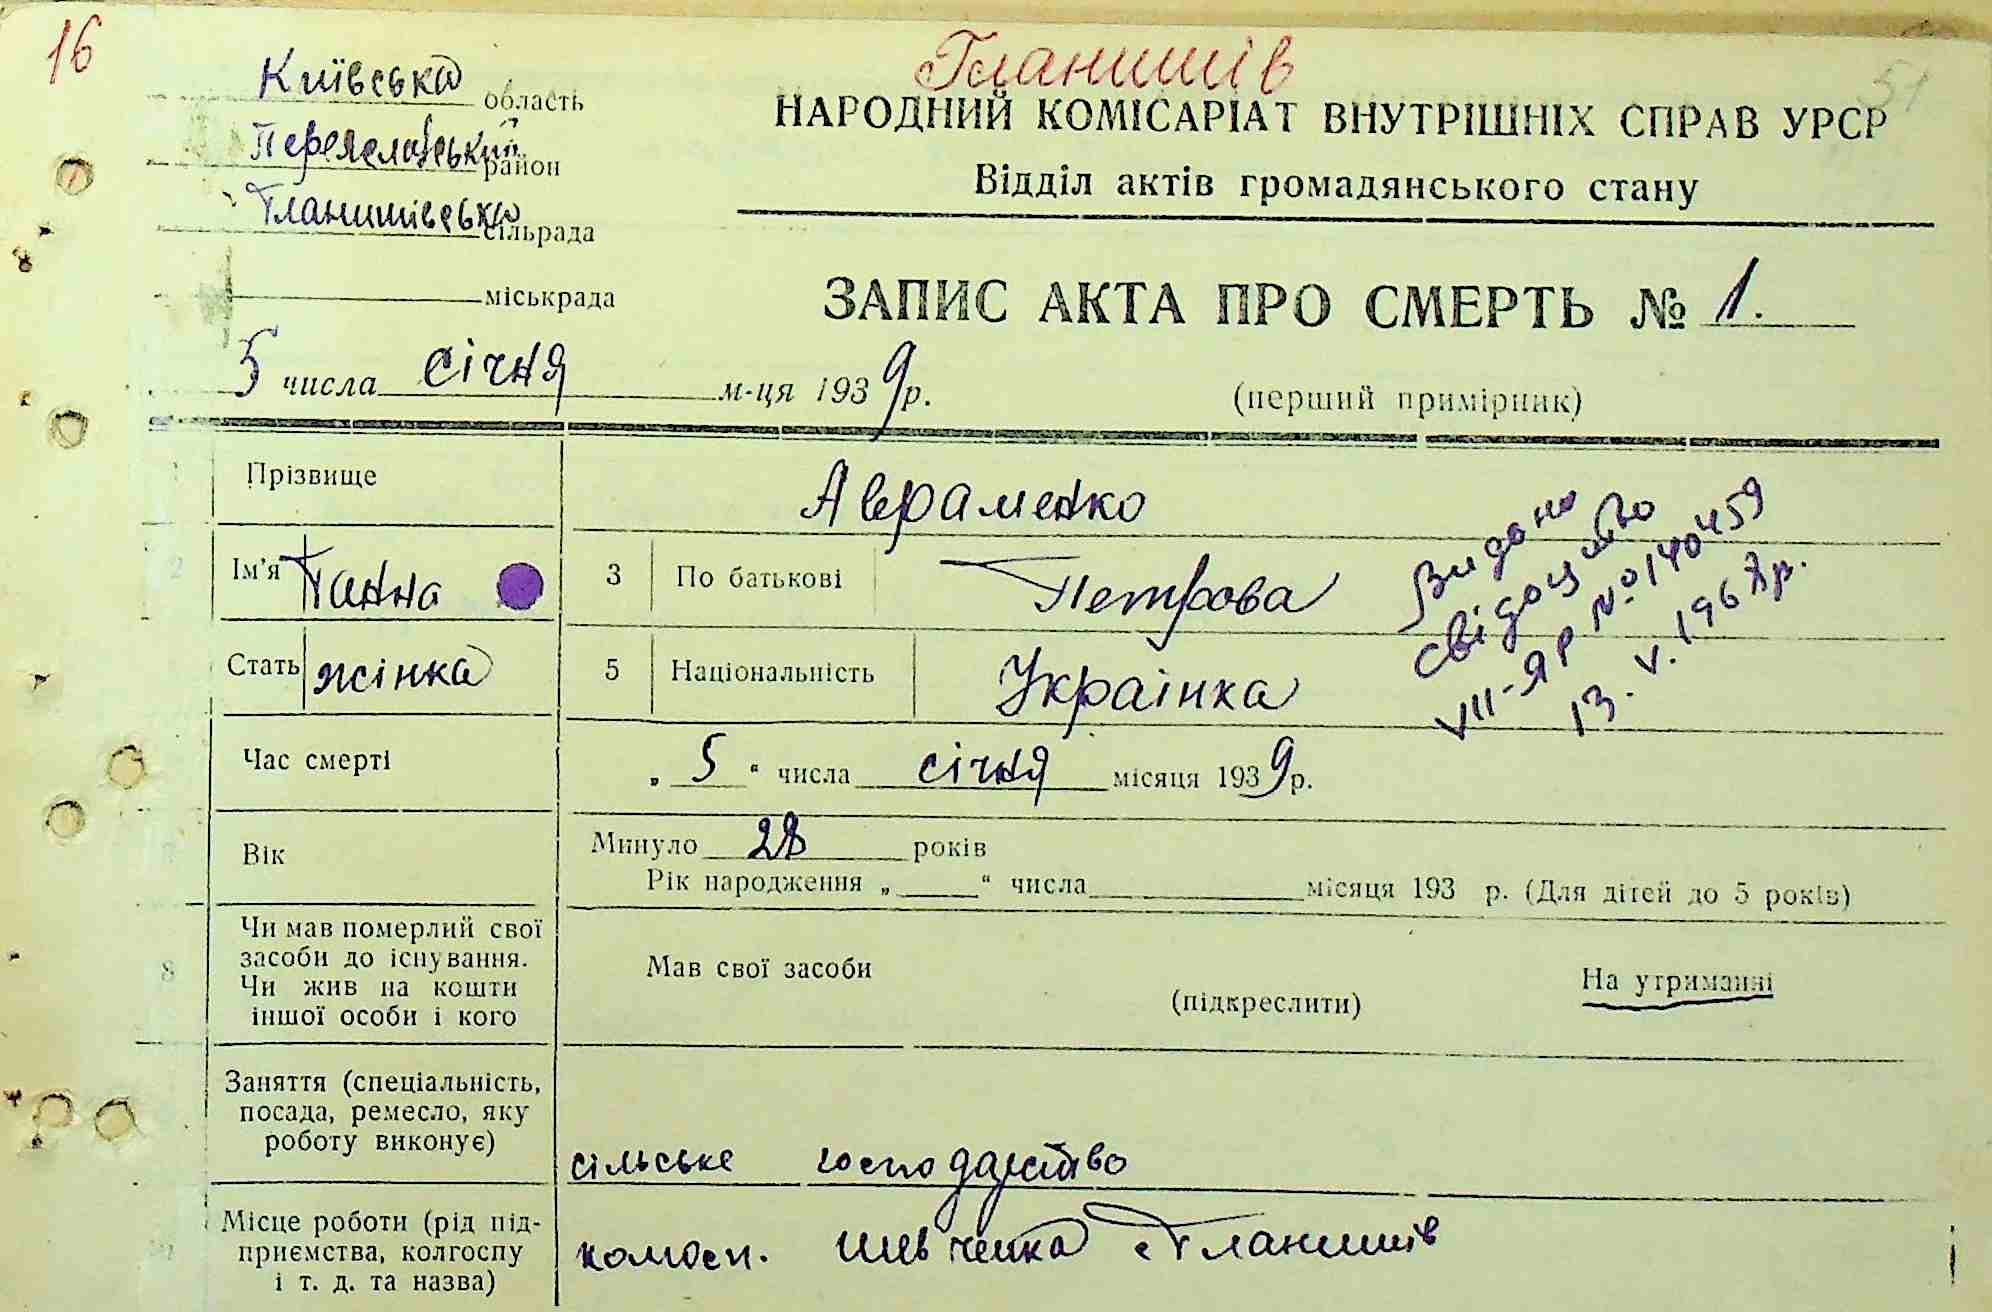 16
Гланишів
51
Київська область
Переяславський район
Гланишівська сільрада
міськрада
НАРОДНИЙ КОМІСАРІАТ ВНУТРІШНІХ СПРАВ УРСР
Відділ актів громадянського стану
ЗАПИС АКТА ПРО СМЕРТЬ № 1.
5 числа січня м-ця 1939 р.
(перший примірник)
1 Прізвище Авраменко
2 Ім'я Ганна 3 По батькові Петрова
Стать жінка 5 Національність Украінка
Видано
свідоцтво
VII-ЯР № 140459
13. V. 196 р.
Час смерті „ 5 “ числа січня місяця 1939 р.
Вік Минуло 28 років
Рік народження „ “ числа місяця 193 р. (Для дітей до 5 років)
8 Чи мав померлий свої
засоби до існування.
Чи жив на кошти
іншої особи і кого
Мав свої засоби (підкреслити) На утриманні
Заняття (спеціальність,
посада, ремесло, яку
роботу виконує)
сільське господарство
Місце роботи (рід під-
приємства, колгоспу
і т. д. та назва)
Шевченка с Гланишів